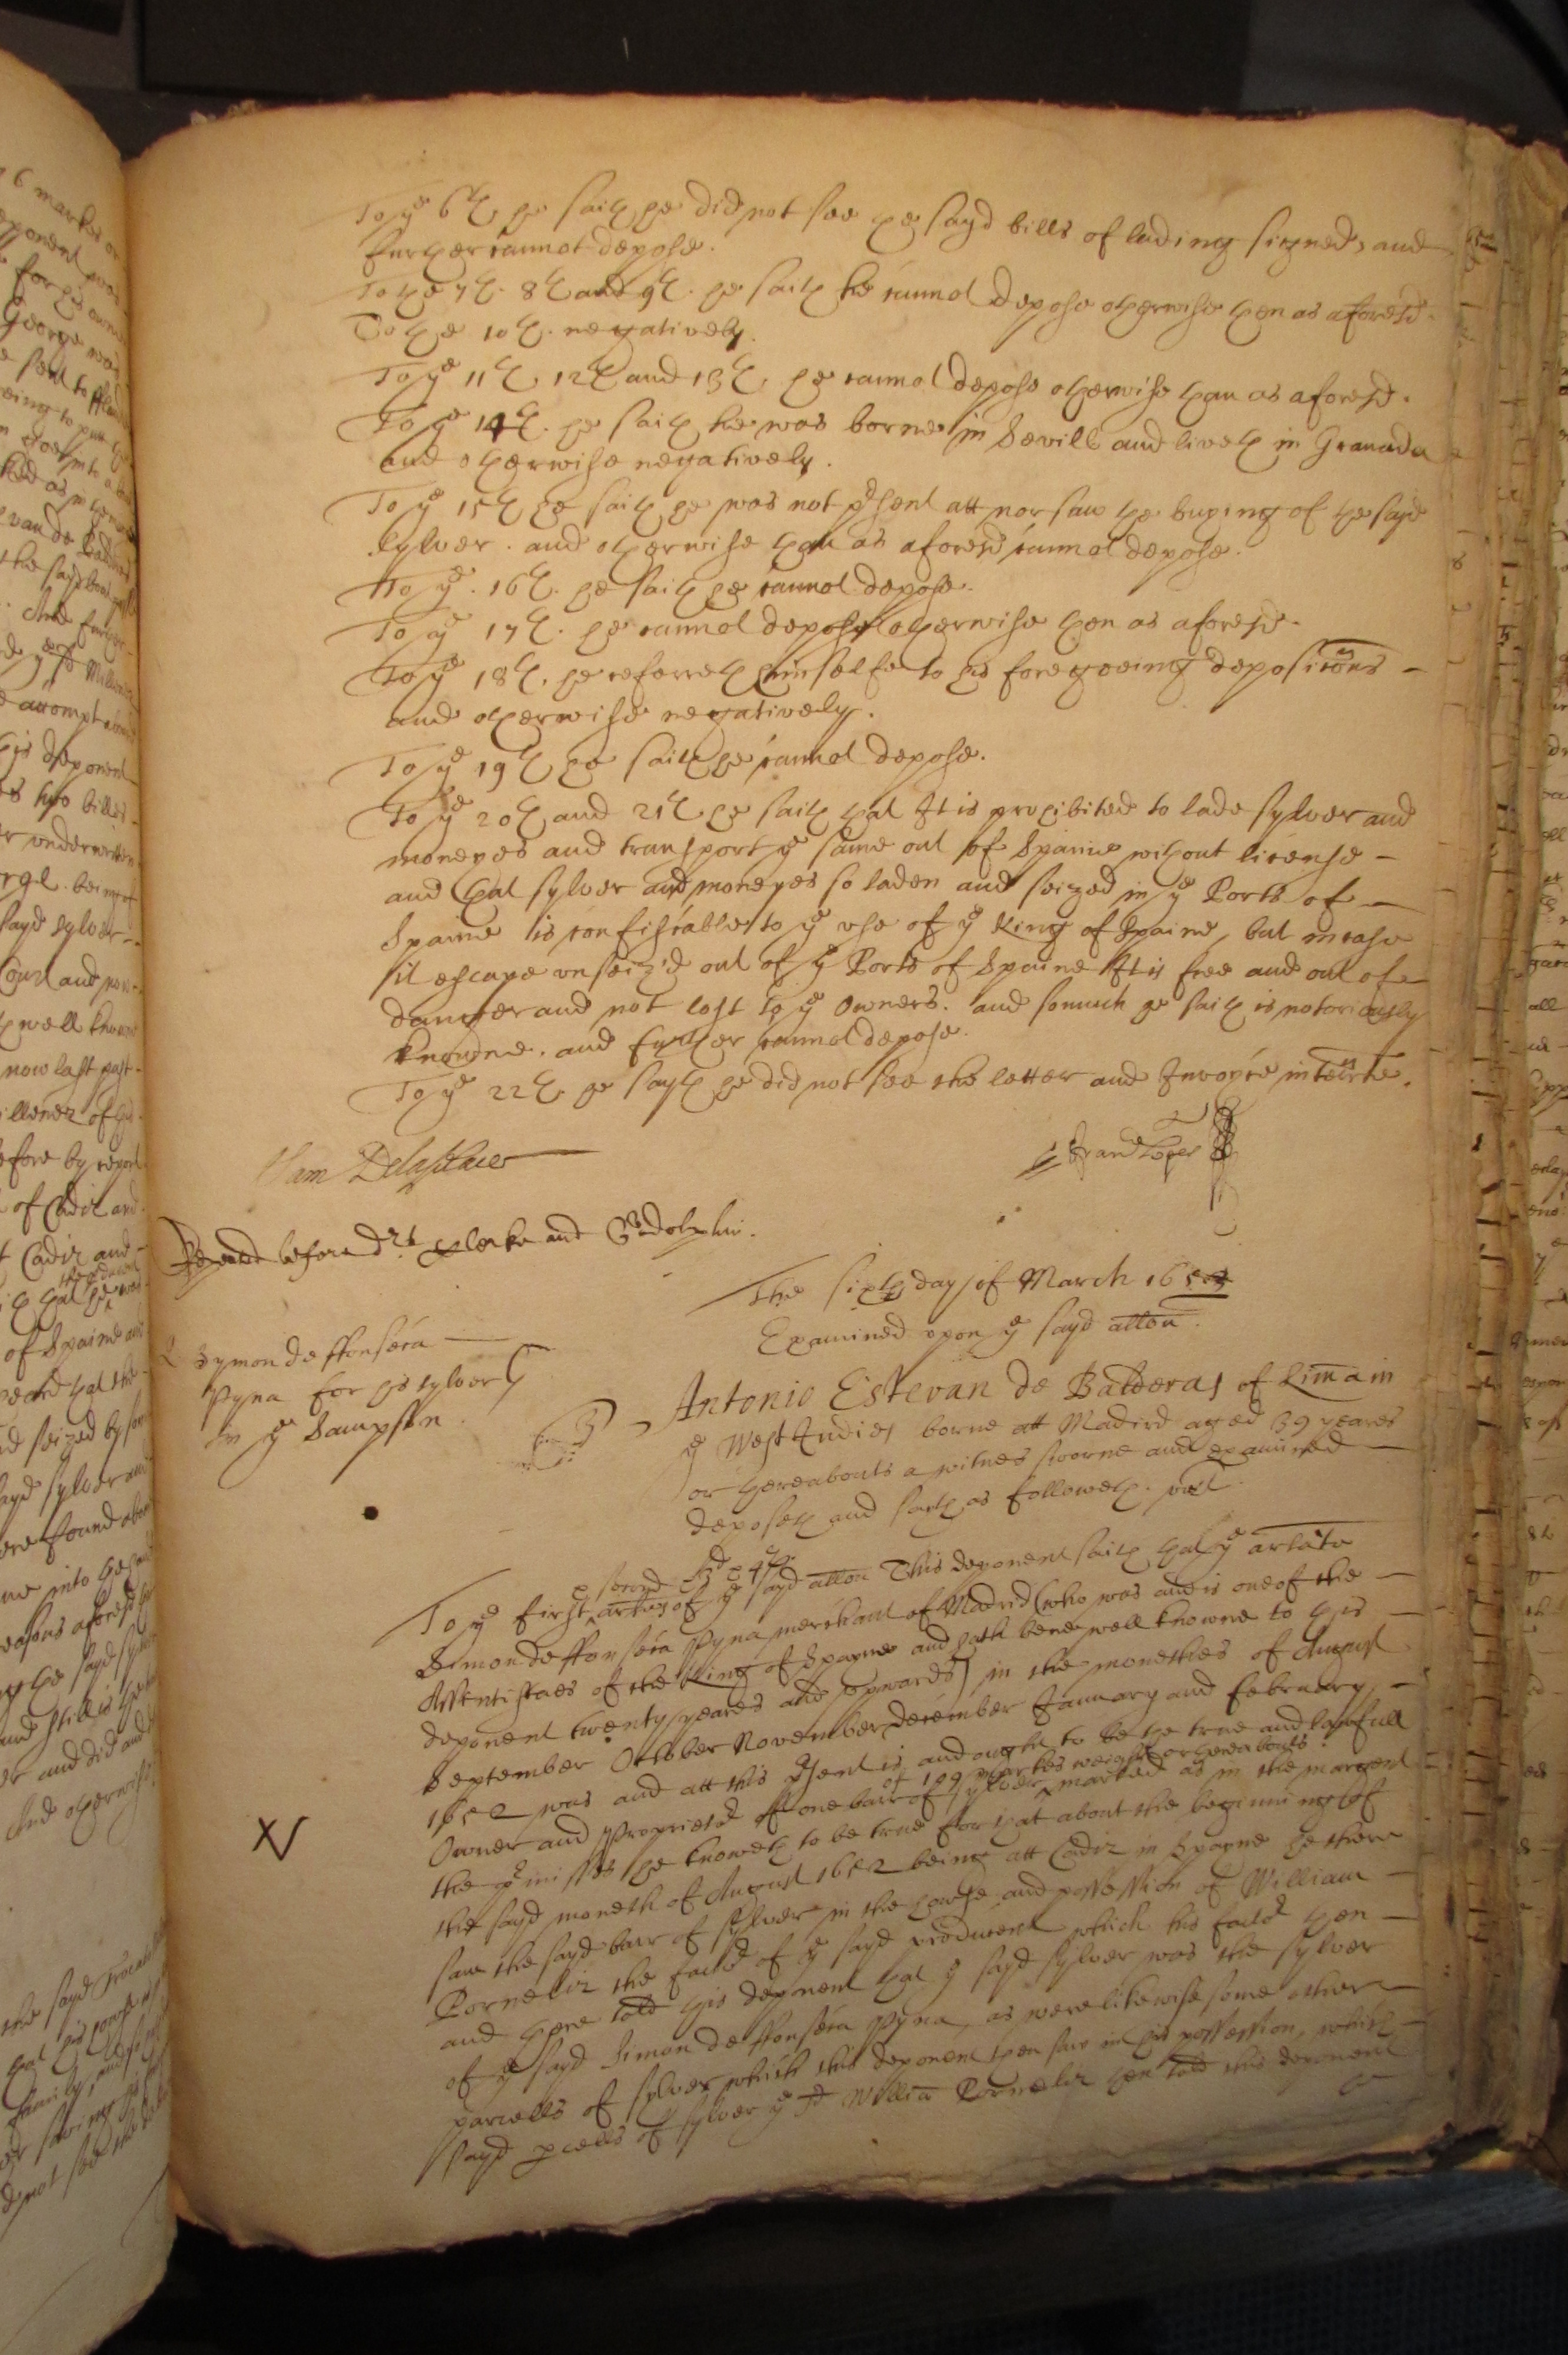 To ye 6th he saith he did not see the sayd bills of lading signed, and
further cannot depose.
To the 7th. 8th and 9th. he saith he cannot depose otherwise then as aforesd.
To the 10th. negatively.
To ye 11th 12th and 13th he cannot depose otherwise than as aforesd.
To ye 14th. he saith he was borne in Sevill and liveth in Granada
and otherwise negatively.
To ye 15th he saith he was not psent att nor saw the buying of the sayd
sylver. and otherwise than as aforesd cannot depose.
To ye. 16th. he saith he cannot depose.
To ye 17th. he cannot depose otherwise then as aforesd.
To ye 18th. he referreth himselfe to his foregoeing depositons
and otherwise negatively.
To ye 19th he saith he cannot depose.
To ye 20th and 21th he saith that It is prohibited to lade sylver and
moneyes and transport ye same out of Spaine without license
and that sylver and moneyes so laden and seized in ye Ports of
Spaine is confiscable to ye use of ye King of Spaine, but in case
it escape unseiz'd out of ye Ports of Spaine It is free and out of
danger and not lost to ye Owners. and somuch he saith is notoriously
knowne. and further cannot depose.
To ye 22th he sayth he did not see the letter and Invoyce interrte.
Repeated before drs Clerke and Godolphin.
The sixth day of March 1652
Examined upon ye sayd allon.
Symon de ffonseca
Pyna for his sylver
in ye Sampson
3
Antonio Estevan de Balderas of Lima in
ye West Indies borne att Madird aged 39 yeares
or thereabouts a witnes sworne and examined
deposeth and saith as followeth. vizt
second 3d 4th
To ye first artles of ye sayd allon This deponent saith that ye artate
Simon de ffonseca Pyna merchant of Madrid (who was and is one of the
Assentistaes of the King of Spayne and hath bene well knowne to this
deponent twenty yeares and upwards) in the monethes of August
September October November December January and February
1652 was and att this psent is and ought to be the true and lawfull
of 109 markes weight or thereabouts
Owner and Proprietor of one barr of sylver marked as in the margent
the pmisses he knoweth to be true for that about the beginning of
the sayd moneth of August 1652 being att Cadiz in Spayne he there
saw the sayd barr of sylver in the howse and possession of William
Pornelix the factor of ye sayd producent which his factor then
and there told this deponent that ye sayd sylver was the sylver
of ye sayd Simon de ffonseca Pyna, as were likewise some other
parcells of sylver which this deponent then saw in his possession, which
sayd pcells of sylver ye sd Willia Pornelix then told this deponent